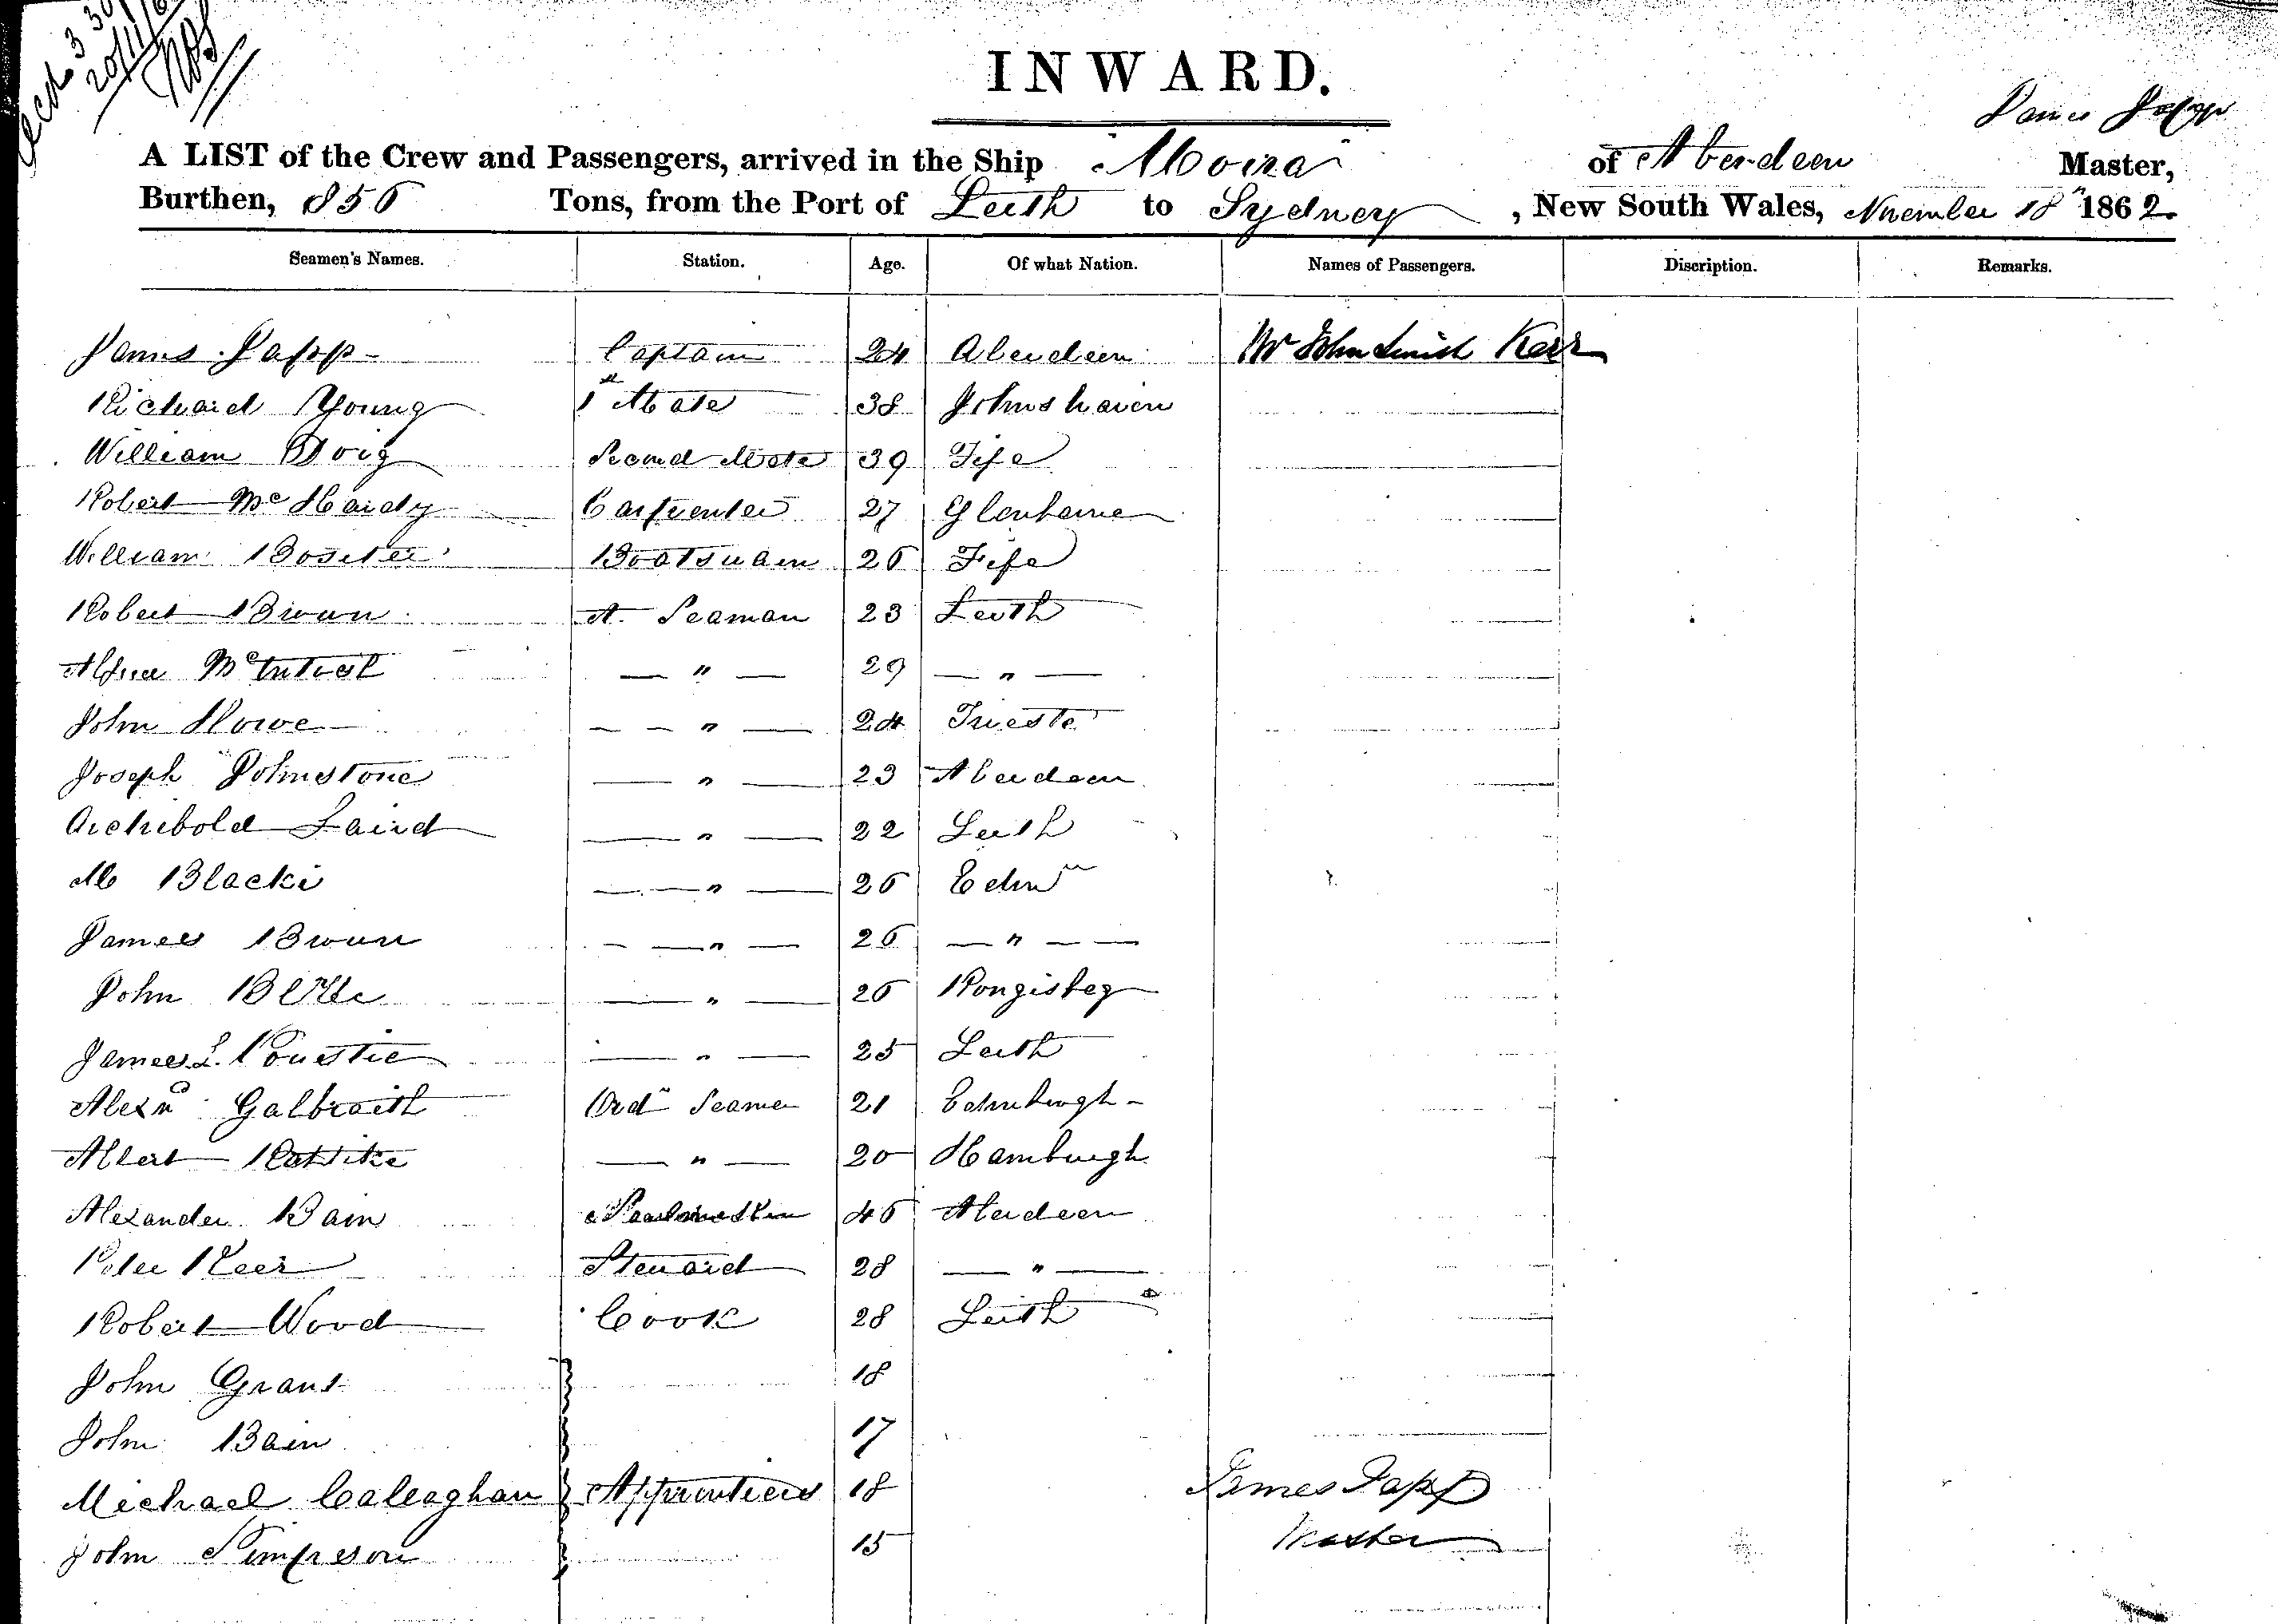 20/11/6
INWARD.
James Japp
A LIST of the Crew and Passengers, arrived in the Ship Moira of Aberdeen Master,
Burthen, 856 Tons, from the Port of Leith to Sydney, New South Wales, November 18th 1862.
Seamen's Names. Station. Age. Of what Nation. Names of Passengers. Discription. Remarks.
James Japp Captain 24 Aberdeen Mr John Smith Kerr
Richard Young 1st Mate 38 Johnshaven
William Doig Second Mate 39 Fife
Robert McHardy Carpenter 27
William Boatswain 26 Fife
Robert Brown A. Seaman 23 Leith
McIntosh — " — 29 — " —
John Howe — — " — 24 Trieste
Joseph Johnstone — " — 23 Aberdeen
Archibold Laird — " — 22 Leith
M Blackie — — " — 26 Edinr
James Brown — — " — 26 — " — —
John — " — 26
James L. — " — 25 Leith
Alexr Galbraith Ordy Seamen 21 Edinburgh -
Albert — " — 20 Hamburgh
Alexander Bain 46 Aberdeen
Peter Keer Steward 28 — " —
Robert Wood Cook 28 Leith
John Grant 18
John Bain 17
Michael Caleaghan Apprentices 18 James Japp
John Simpson 15 Master